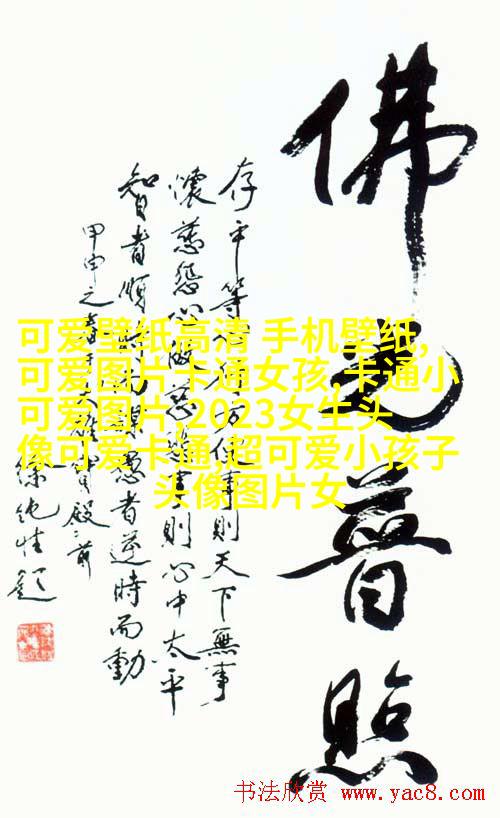 佛光普照
存平等心行方便事則天下無事
懷慈悲心做慈善事則心中太平
智者順時而謀愚者逆時而動
甲申之春于大雄寶殿之前
徐純性題
可爱壁纸高清 手机壁纸,
可爱图片卡通女孩,卡通小
可爱图片,2023女生头
像可爱卡通,超可爱小孩子
头像图片女
书法欣赏 www.yac8.com